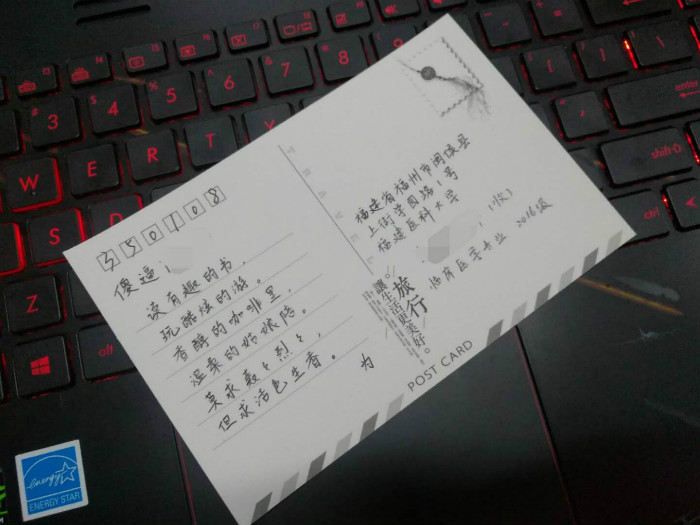 350108
傻逼！
读有趣的书，
玩酷炫的游。
香醇的咖啡里，
温柔的好眠陪。
莫求轰轰烈烈，
但求活色生香。
为
福建省福州市闽侯县
上街学园路1号
福建医科大学
（收）
临床医学专业 2016级
旅行
让生活更美好。
POST CARD
3
4
5
6
7
8
9
W
E
R
T
Y
S
Z
X
enter
shift-D
ctrl
A
energy
ENERGY STAR